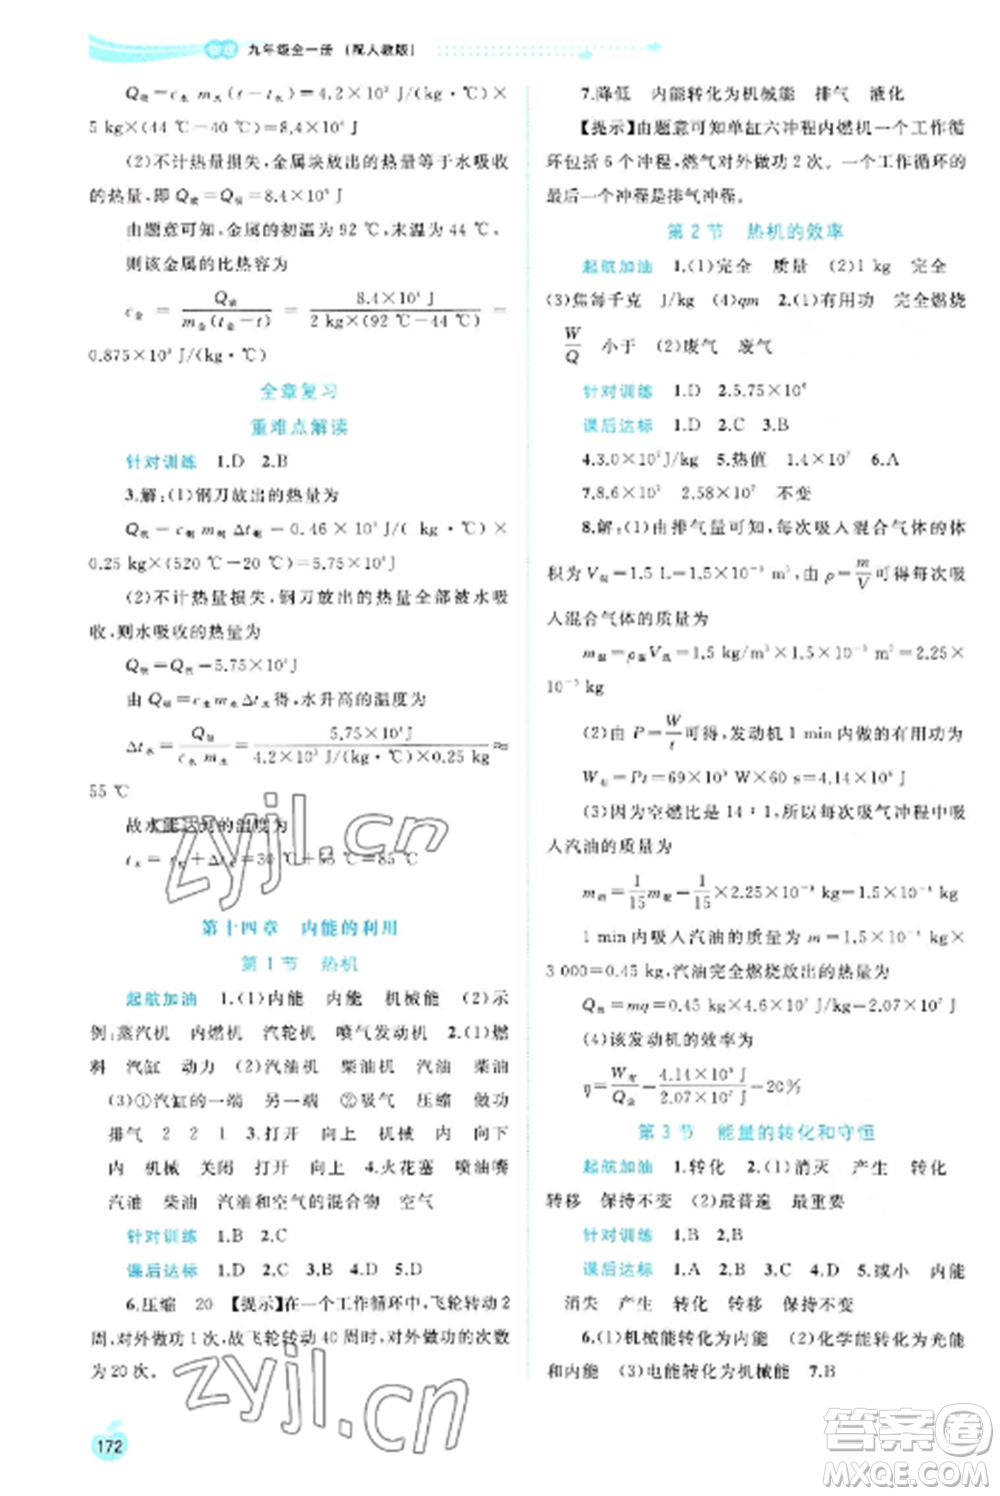 物理 九年级全一册 （配人教版）
Q吸=c水 m水(t-t水)=4.2×10³ J/(kg·℃)×
5 kg×(44 ℃-40 ℃)=8.4×10⁴ J
(2)不计热量损失,金属块放出的热量等于水吸收
的热量,即 Q放=Q吸=8.4×10⁴ J
由题意可知,金属的初温为 92 ℃,末温为 44 ℃,
则该金属的比热容为
c金=Q放/m金(t金-t)=8.4×10⁴ J/2 kg×(92 ℃-44 ℃)=
0.875×10³ J/(kg·℃)
全章复习
重难点解读
针对训练 1.D 2.B
3.解:(1)钢刀放出的热量为
Q放=c钢 m钢 Δt钢=0.46×10³ J/(kg·℃)×
0.25 kg×(520 ℃-20 ℃)=5.75×10⁴ J
(2)不计热量损失,钢刀放出的热量全部被水吸
收,则水吸收的热量为
Q吸=Q放=5.75×10⁴ J
由 Q吸=c水 m水 Δt水得,水升高的温度为
Δt水=Q吸/c水 m水=5.75×10⁴ J/4.2×10³ J/(kg·℃)×0.25 kg≈
55 ℃
故水能达到的温度为
t水=t0水+Δt水=30 ℃+55 ℃=85 ℃
第十四章 内能的利用
第 1 节 热机
起航加油 1.(1)内能 内能 机械能 (2)示
例:蒸汽机 内燃机 汽轮机 喷气发动机 2.(1)燃
料 汽缸 动力 (2)汽油机 柴油机 汽油 柴油
(3)①汽缸的一端 另一端 ②吸气 压缩 做功
排气 2 2 1 3.打开 向上 机械 内 向下
内 机械 关闭 打开 向上 4.火花塞 喷油嘴
汽油 柴油 汽油和空气的混合物 空气
针对训练 1.B 2.C
课后达标 1.D 2.C 3.D 4.D 5.D
6.压缩 20 【提示】在一个工作循环中,飞轮转动 2
周,对外做功 1 次,故飞轮转动 40 周,对外做功的次数
为 20 次。
172
7.降低 内能转化为机械能 排气 液化
【提示】由题意可知单缸六冲程内燃机一个工作循
环包括 6 个冲程,燃气对外做功 2 次。一个工作循环的
最后一个冲程是排气冲程。
第 2 节 热机的效率
起航加油 1.(1)完全 质量 (2)1 kg 完全
(3)焦每千克 J/kg (4)qm 2.(1)有用功 完全燃烧
W/Q 小于 (2)废气 废气
针对训练 1.D 2.5.75×10⁶
课后达标 1.D 2.C 3.B
4.3.0×10⁷ J/kg 5.热值 1.4×10⁷ 6.A
7.8.6×10⁷ 2.58×10⁷ 不变
8.解:(1)由排气量可知,每次吸入混合气体的体
积为 V混=1.5 L=1.5×10⁻³ m³ 由 ρ=m/V可得每次吸
入混合气体的质量为
m混=ρ混V混=1.5 kg/m³×1.5×10⁻³ m³=2.25×
10⁻³ kg
(2)由 P=W/t可得,发动机 1 min 内做的有用功为
W有=Pt=69×10³ W×60 s=4.14×10⁶ J
(3)因为空燃比是 14∶1,所以每次吸气冲程吸
入汽油的质量为
m油=1/15m混=1/15×2.25×10⁻³ kg=1.5×10⁻⁴ kg
1 min 内吸入汽油的质量为 m=1.5×10⁻⁴ kg×
3 000=0.45 kg,汽油完全燃烧放出的热量为
Q放=mq=0.45 kg×4.6×10⁷ J/kg=2.07×10⁷ J
(4)该发动机的效率为
η=W有/Q放=4.14×10⁶ J/2.07×10⁷ J=20%
第 3 节 能量的转化和守恒
起航加油 1.转化 2.(1)消灭 产生 转化
转移 保持不变 (2)最普遍 最重要
针对训练 1.B 2.B
课后达标 1.A 2.B 3.C 4.D 5.减小 内能
消失 产生 转化 转移 保持不变
6.(1)机械能转化为内能 (2)化学能转化为光能
和内能 (3)电能转化为机械能 7.B
zyjl.cn
zyjl.cn
答案圈
MXQE.COM